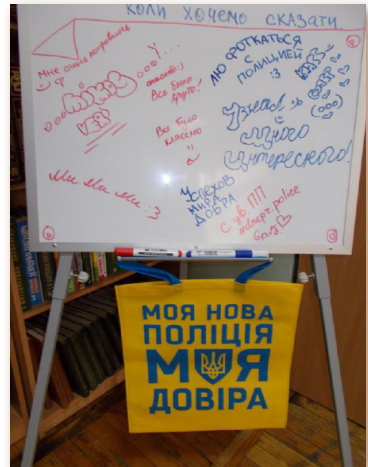 КОЛИ ХОЧЕМО СКАЗАТИ
Мне очень понравилось
У...
спасибо:)
Все было
круто!
ЛЮ ФОТКАТЬСЯ
С
ПОЛИЦИЕЙ
:3
Все было
классно
Узнал
много
интересного!
Ми Ми Ми :3
Успехов
МИРА
ДОБРА
С ув. ПП
МОЯ НОВА
ПОЛІЦІЯ
МОЯ
ДОВІРА